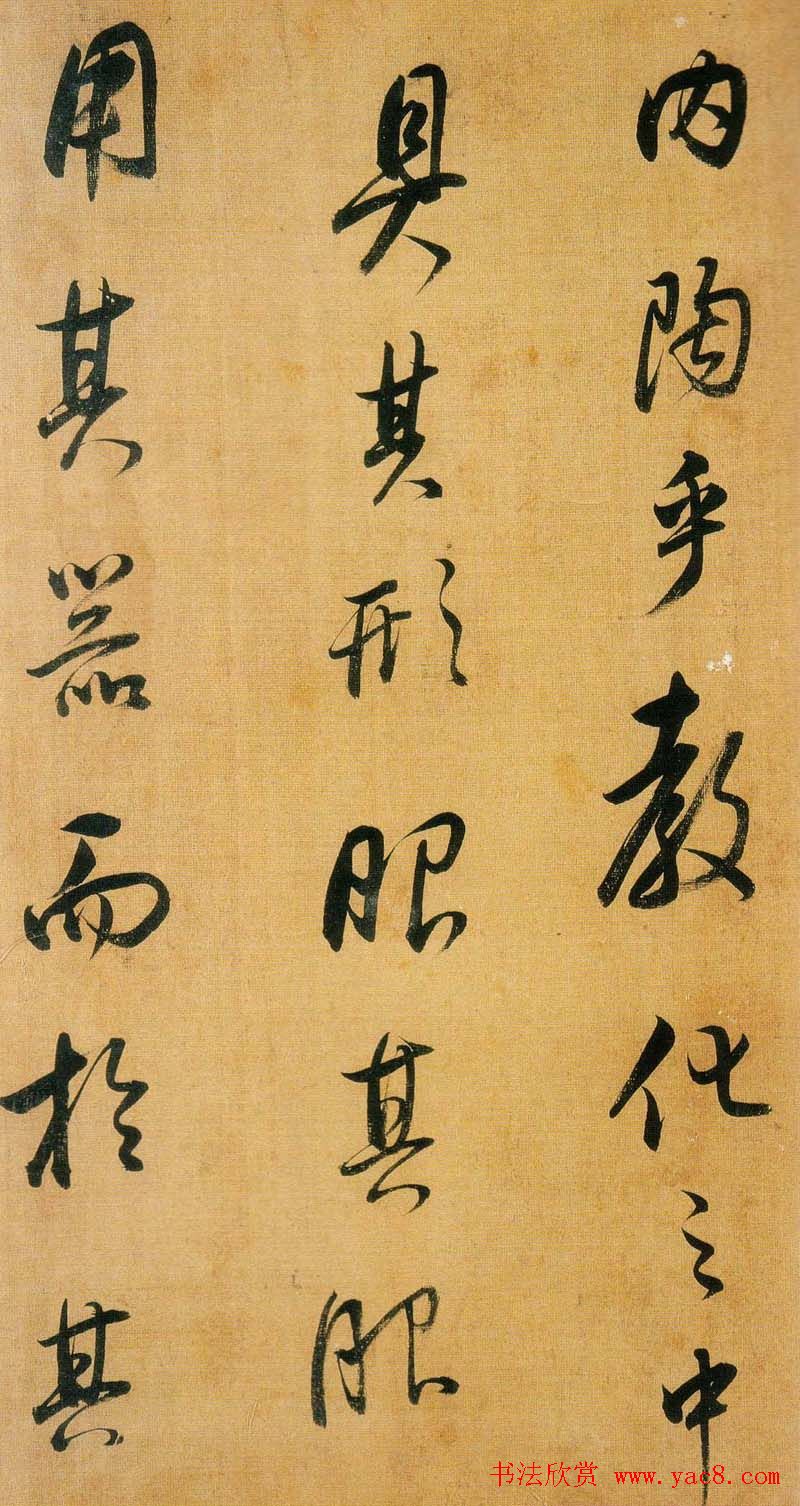 内陶乎教化之中
具其形服其服
用其器而於其
书法欣赏 www.yac8.com